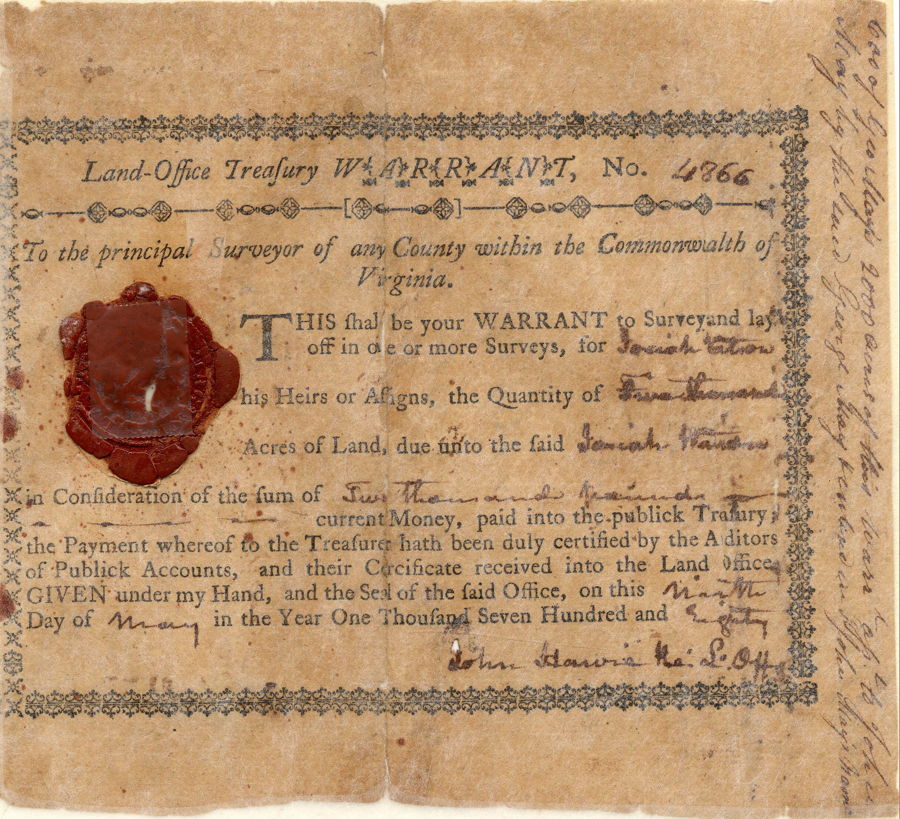 Land-Office Treaſury WARRANT, No. 4866
To the principal Surveyor of any County within the Commonwealth of
Virginia.
THIS ſhall be your WARRANT to Survey and lay
off in one or more Surveys, for Josiah Watson
his Heirs or Aſſigns, the Quantity of Two thousand
Acres of Land, due unto the ſaid Josiah Watson
in Conſideration of the ſum of Two thousand Pounds
current Money, paid into the publick Traſury;
the Payment whereof to the Treaſurer hath been duly certified by the Auditors
of Publick Accounts, and their Certificate received into the Land Office.
GIVEN under my Hand, and the Seal of the ſaid Office, on this Ninth
Day of May in the Year One Thouſand Seven Hundred and Eighty
John Harvie Re. L. Off
2000 acres of this warr
May by the said George May & entered in John May's name